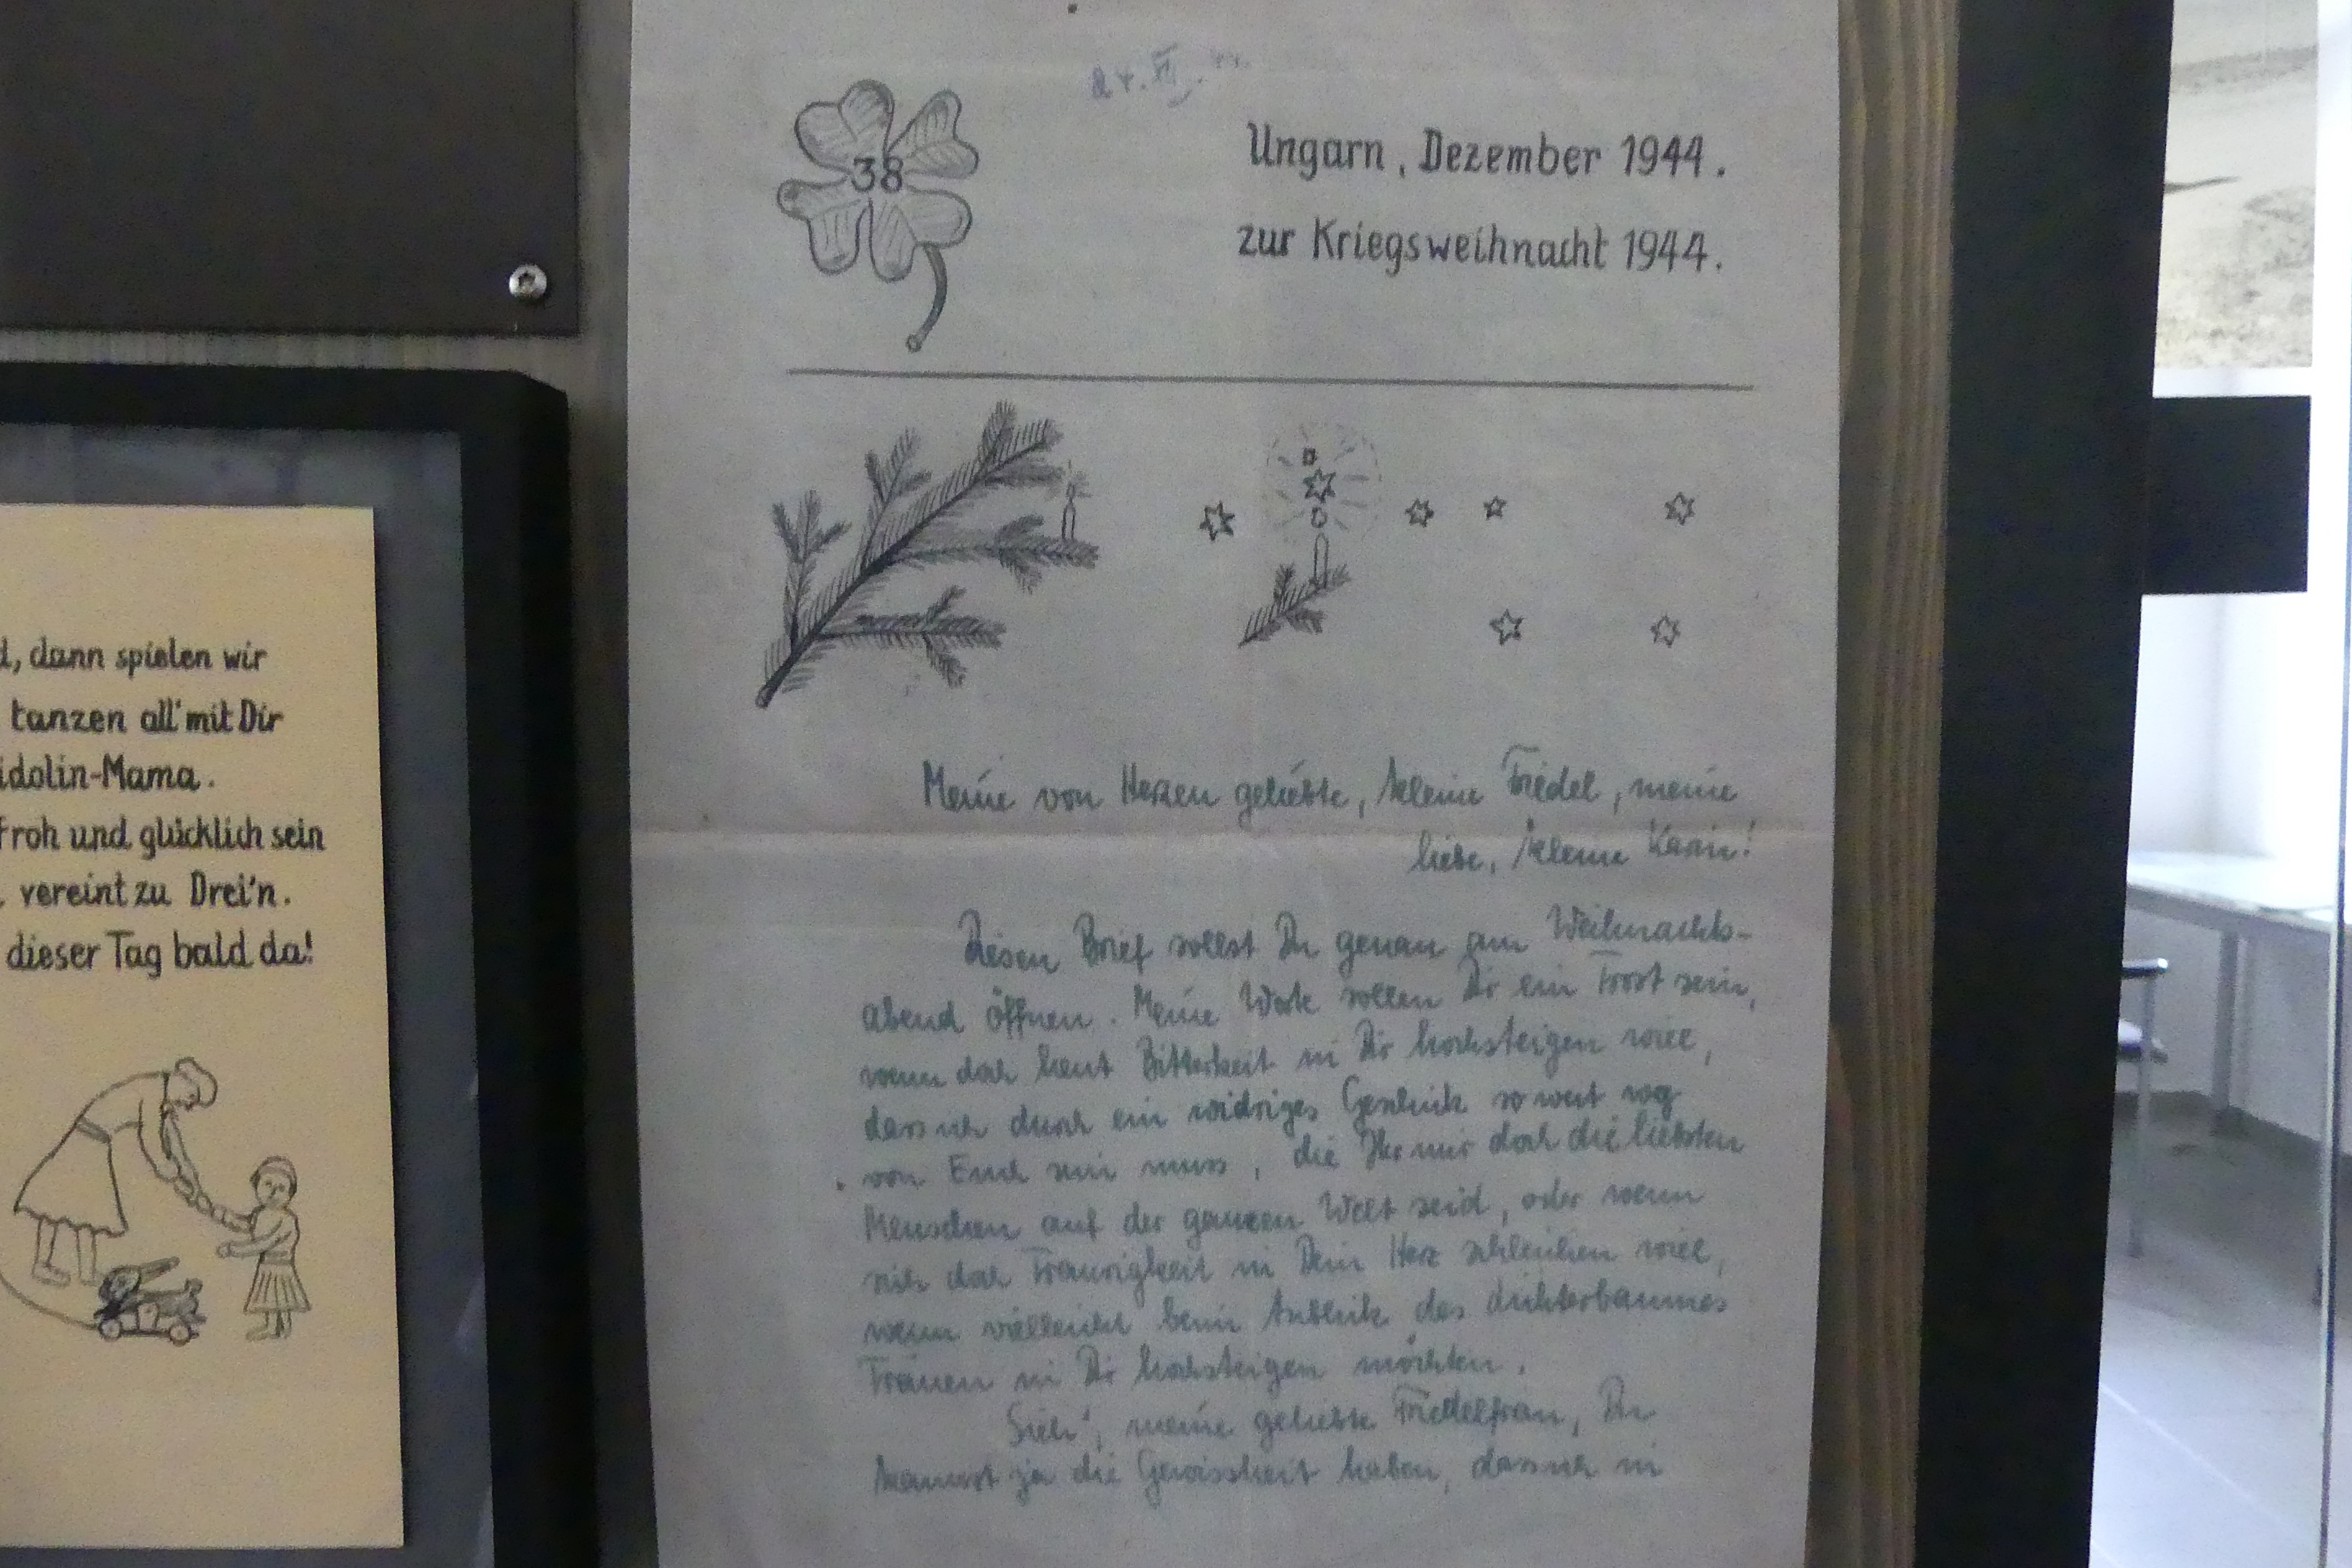 d, dann spielen wir
tanzen all' mit Dir
idolin-Mama.
froh und glücklich sein
vereint zu Drei'n.
dieser Tag bald da!
24. XII.
38
Ungarn, Dezember 1944.
zur Kriegsweihnacht 1944.
Meine von Herzen geliebte, kleine Friedel, meine
liebe, kleine Karin!
Diesen Brief sollst Du genau am Weihnachts-
abend öffnen. Meine Worte sollen Dir ein Trost sein,
wenn doch heut Bitterkeit in Dir hochsteigen will,
dass ich durch ein widriges Geschick so weit weg
von Euch sein muss, die Ihr mir doch die liebsten
Menschen auf der ganzen Welt seid, oder wenn
sich doch Traurigkeit in Dein Herz schleichen will,
wenn vielleicht beim Anblick des Lichterbaumes
Tränen in Dir hochsteigen möchten.
Sieh', meine geliebte Friedelfrau, Du
kannst ja die Gewissheit haben, dass ich in